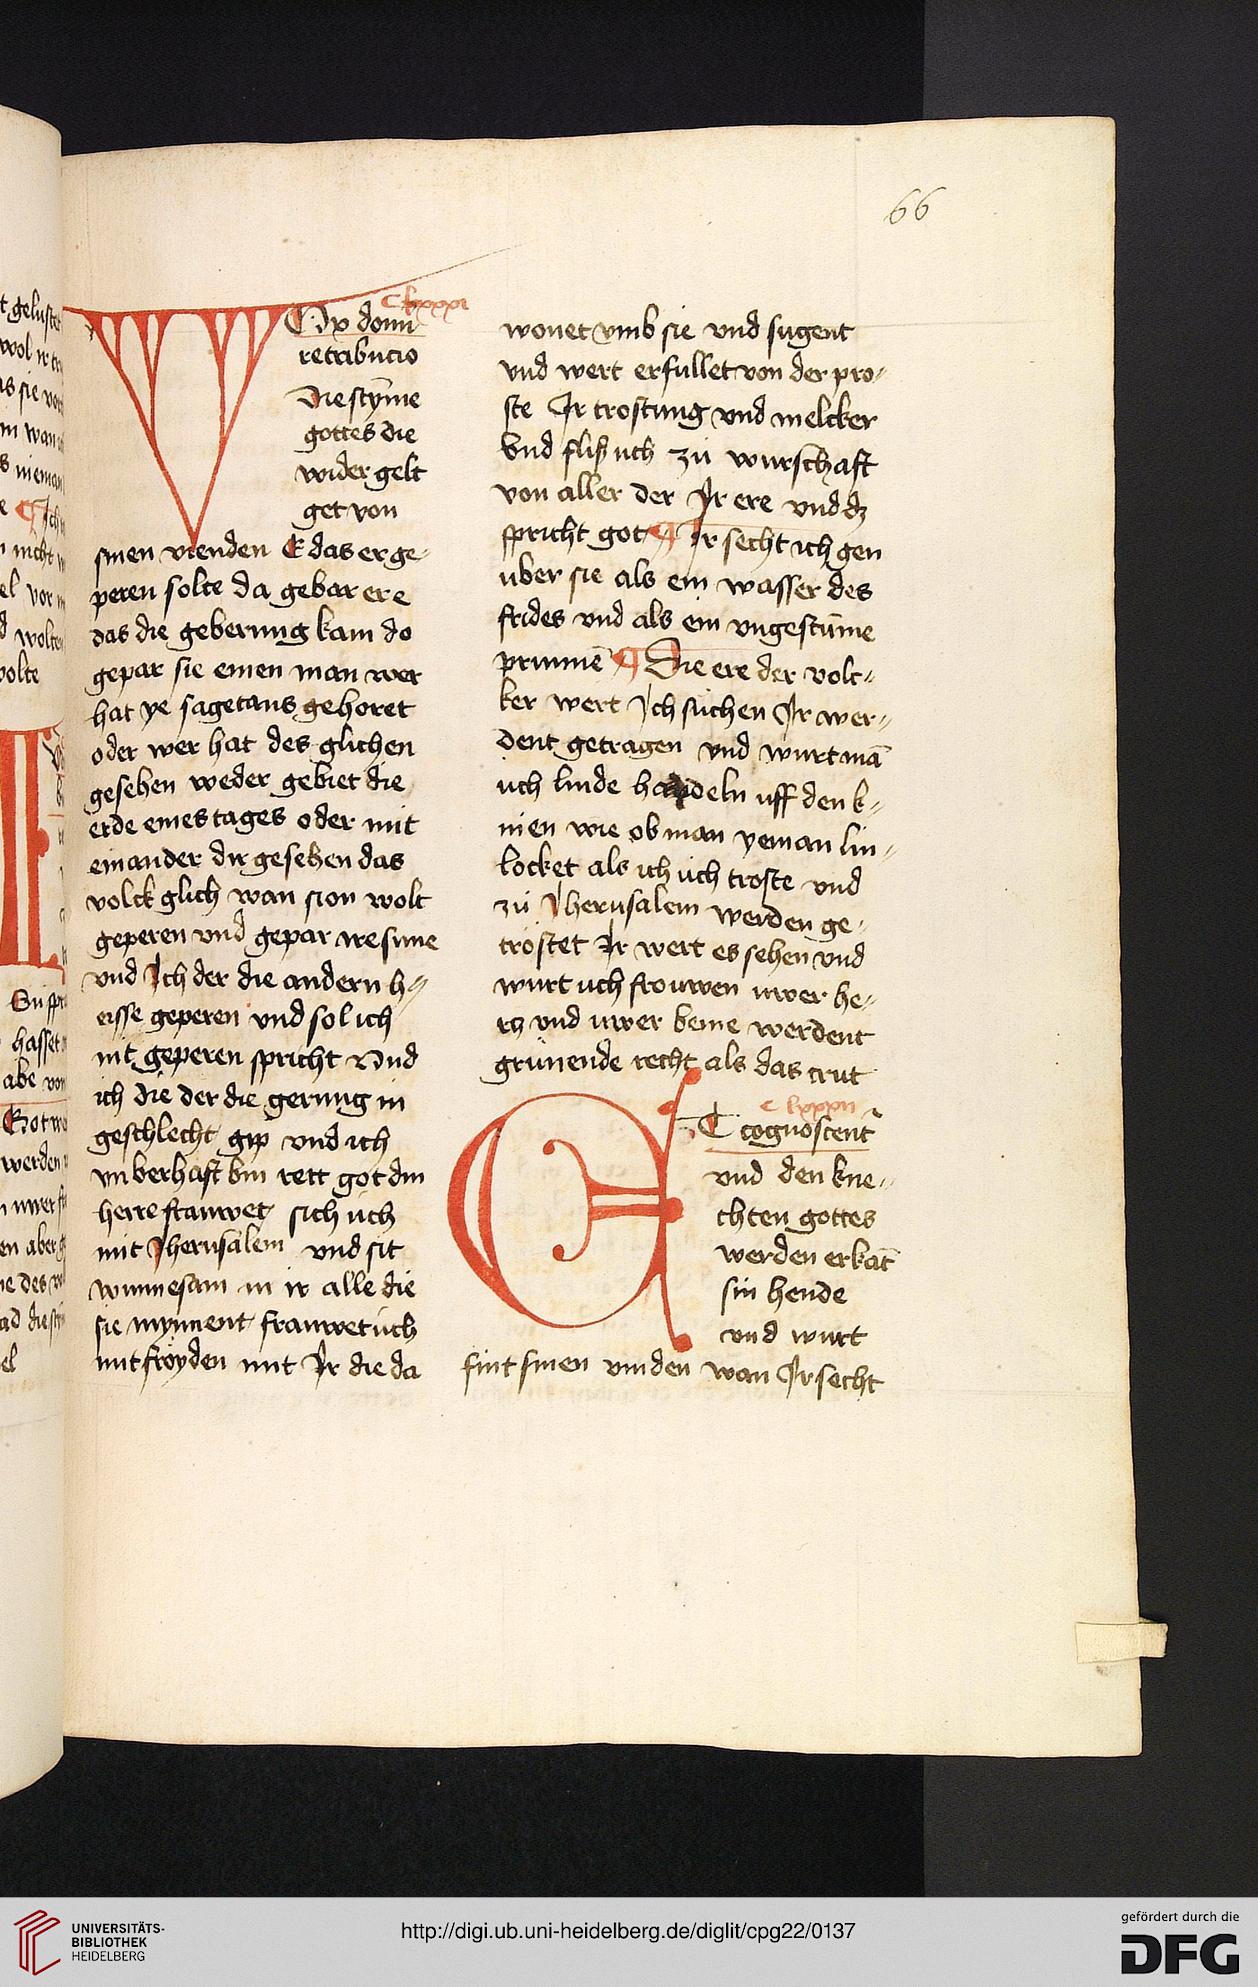 66
Clxxxi
VOx domi
retribucio
Die stȳme
gottes die
wider gelt
get von
sinen vienden E das er ge-
peren solte da gebar er e
das die geberung kam do
gepar sie einen man wer
hat ye sagetans gehoret
oder wer hat des glichen
gesehen weder gebiet die
erde eines tages oder mit
einander dir gesehen das
volck glich wan sion wolt
geperen vnd gepar ire sune
vnd Ich der die andern h-
eisse geperen vnd sol ich
nit geperen spricht Vnd
ich die der die gerung in
geschlecht gip vnd ich
vnberhaft bin rett got din
herre frauwet sich uch
mit Jherusalem vnd sit
wunnesam in ir alle die
sie mynnent frauwet uch
mit fröyden mit Ir die da
wonet vmb sie vnd sugent
vnd wert erfullet von der pro-
ste Ir trostung vnd melcker
Vnd fliß uch zu wurschaft
von aller der Ir ere vnd dz
spricht got ¶ Ir secht ich gen
uber sie als ein wasser des
frides vnd als ein vngestūme
prunnē ¶ Die ere der volc-
ker wert Ich suchen Ir wer-
dent getragen vnd wurt mā
uch linde handeln uff den k-
nien wie ob man yeman lin-
locket als ich uch troste vnd
zu Jherusalem werden ge-
trostet Ir wert es sehen vnd
wurt uch frouwen uwer he-
rtz vnd uwer beine werdent
grunende recht als das crut
clxxxii
ET cognoscent̄
vnd den kne-
chten gottes
werden erkāt
sin hende
vnd wurt
sint sinen vinden wan Ir secht
UNIVERSITÄTS-
BIBLIOTHEK
HEIDELBERG
http://digi.ub.uni-heidelberg.de/diglit/cpg22/0137
gefördert durch die
DFG